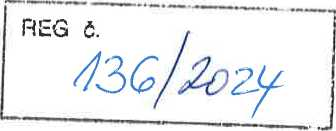 REG č.
136/2024